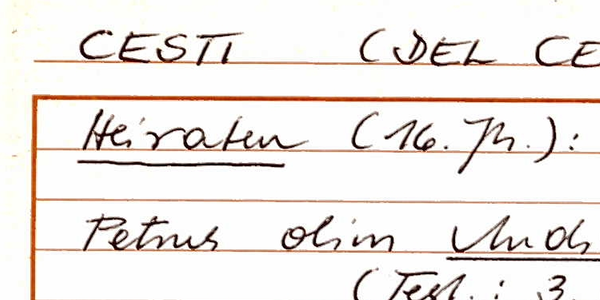 CESTI (DEL CE
Heiraten (16. Jh.):
Petrus olim
(Test.: 3.